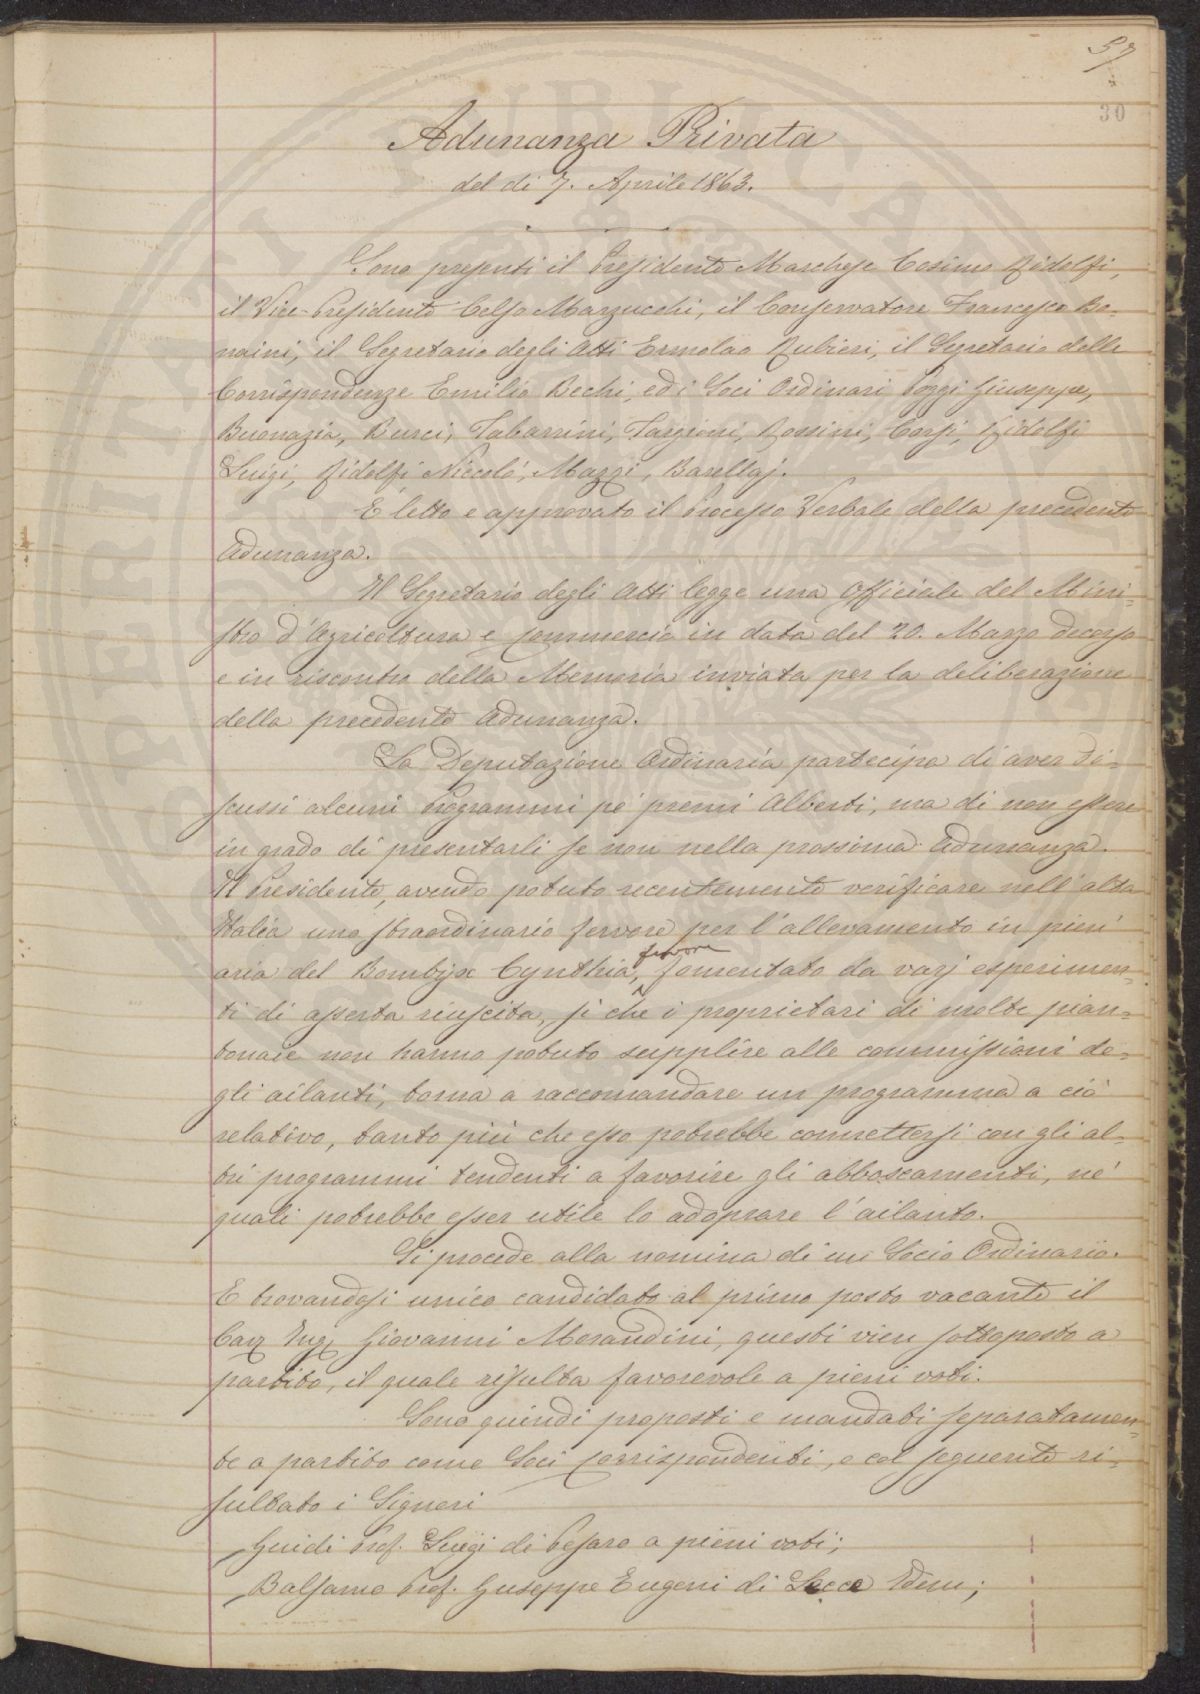 57
30
Adunanza Privata
del di 7. Aprile 1863.
Sono presenti il Presidente Marchese Cosimo Ridolfi,
il Vice-Presidente Celso Marzucchi, il Conservatore Francesco Bo-
naini, il Segretario degli Atti Ermolao Rubieri, il Segretario delle
Corrispondenze Emilio Bechi, ed i Soci Ordinari Poggi Giuseppe,
Buonazia, Burci, Tabarrini, Targioni, Rossini, Corsi, Ridolfi
Luigi, Ridolfi Niccolò, Mazzi, Barellaj.
È letto e approvato il Processo Verbale della precedente
Adunanza.
Il Segretario degli Atti legge una Officiale del Mini-
stro d'Agricoltura e Commercio in data del 20. Marzo decorso
e in riscontro della Memoria inviata per la deliberazione
della precedente Adunanza.
La Deputazione Ordinaria partecipa di aver di-
scussi alcuni Programmi pe' premi Alberti, ma di non essere
in grado di presentarli se non nella prossima Adunanza.
Il Presidente, avendo potuto recentemente verificare nell'alta
Italia uno straordinario fervore per l'allevamento in pien'
aria del Bombyx Cynthia, favore fomentato da varj esperimen-
ti di asserta riuscita, sì che i proprietari di molte pian-
tonaie non hanno potuto supplire alle commissioni de-
gli ailanti, torna a raccomandare un programma a ciò
relativo, tanto più che esso potrebbe connettersi con gli al-
tri programmi tendenti a favorire gli abboscamenti, ne'
quali potrebbe esser utile lo adoprare l'ailanto.
Si procede alla nomina di un Socio Ordinario.
E trovandosi unico candidato al primo posto vacante il
Cav Ing Giovanni Morandini, questi vien sottoposto a
partito, il quale risulta favorevole a pieni voti.
Sono quindi proposti e mandati separatamen-
te a partito come Soci Corrispondenti, e col seguente ri-
sultato i Signori
Guidi Prof. Luigi di Pesaro a pieni voti;
Balsamo Prof. Guseppe Eugeni di Lecce Idem;